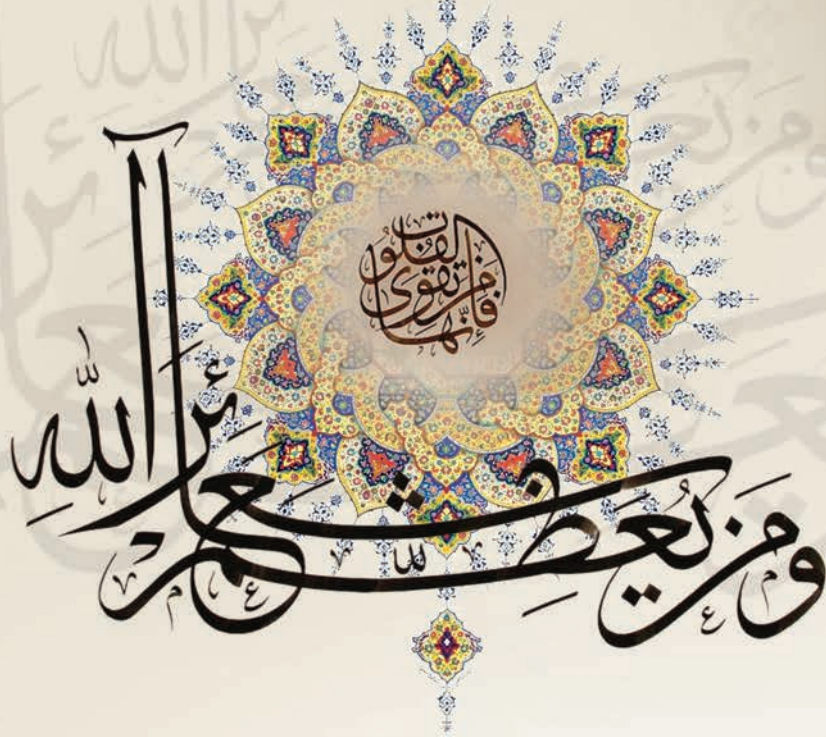 ومن يُعَظِّم شعائر اللهِ
فإنّها من تقوى القُلُوب